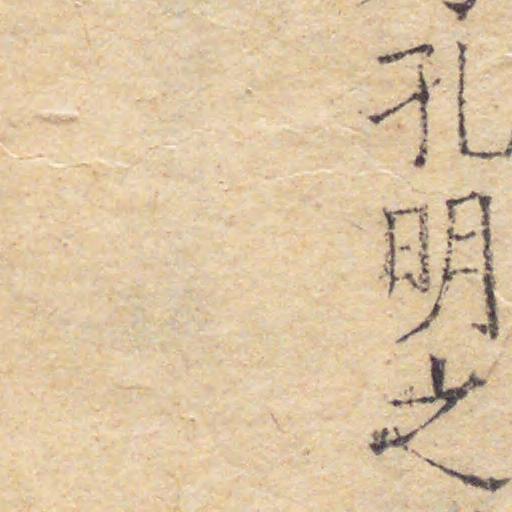 孔明之